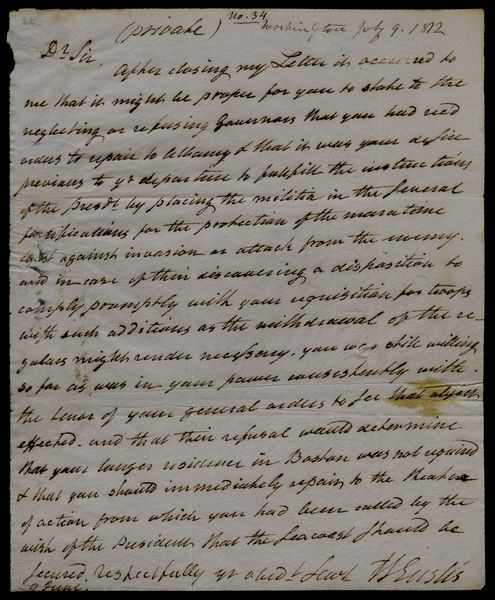 (private) No. 34 Washington July 9. 1812
Dr Sir,
After closing my Letter it occurred to
me that it might be proper for you to state to the
neglecting or refusing Governors that you had recd
orders to repair to Albany & that it was your desire
previous to yr departure to fulfill the instructions
of the Presdt by placing the militia in the several
fortifications for the protection of the maratime
coast against invasion or attack from the enemy.
and in case of their discovering a disposition to
comply promptly with your requisition for troops
with such additions as the withdrawal of the re-
gulars might render necessary. you was still willing
so far as was in your power consistently with
the tenor of your general orders to see that object
effected. and that their refusal would determine
that your longer residence in Boston was not required
& that you should immediately repair to the theatre
of action from which you had been called by the
wish of the President that the Seacoast should be
secured. respectfully yr obedt Servt W Eustis